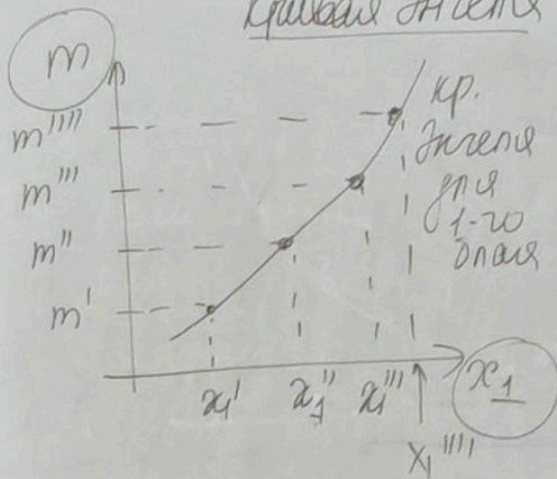 Кривая Энгеля
m
m''''
m'''
m''
m'
кр.
Энгеля
для
1-го
блага
x₁'
x₁''
x₁'''
x₁''''
x₁